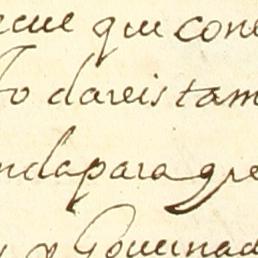 ecue que cone
to dareis tam
ndaparagre
y o Gouernad